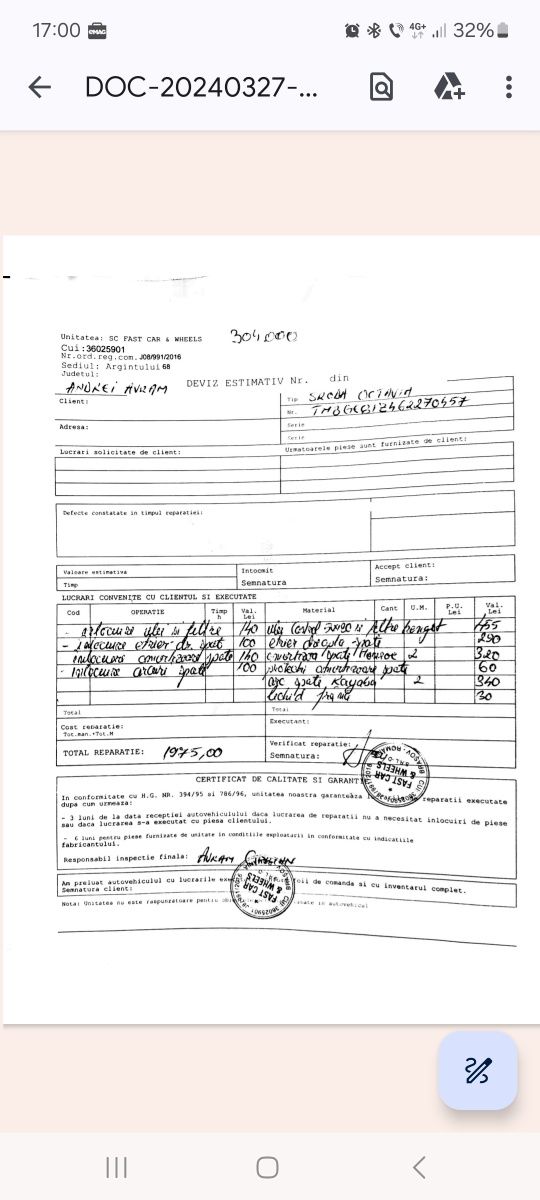 17:00 eMAG 4G+ 32%
DOC-20240327-...
304,000
Unitatea: SC FAST CAR & WHEELS
Cui: 36025901
Nr.ord.reg.com. J08/991/2016
Sediul: Argintului 68
Judetul:
ANDREI AVRAM
DEVIZ ESTIMATIV Nr. din
Client:
Tip SKODA OCTAVIA
Nr.
Adresa:
Serie
Serie
Lucrari solicitate de client:
Urmatoarele piese sunt furnizate de client:
Defecte constatate in timpul reparatiei:
Valoare estimativa
Intocmit
Accept client:
Timp
Semnatura
Semnatura:
LUCRARI CONVENITE CU CLIENTUL SI EXECUTATE
Cod OPERATIE Timp h Val. Lei Material Cant U.M. P.U. Lei Val. Lei
- inlocuire ulei si filtre 140 ulei 5W30 si filtre hengst 455
- inlocuire etrier dr. spate 100 etrier dreapta spate 290
inlocuire amortizoare spate 140 amortizoare spate Monroe 2 320
inlocuire arcuri spate 100 protectii amortizoare spate 60
arc spate Kayaba 2 340
lichid frana 30
Total
Total
Cost reparatie:
Tot.man.+Tot.M
Executant:
TOTAL REPARATIE: 1975,00
Verificat reparatie:
Semnatura:
CERTIFICAT DE CALITATE SI GARANTIE
In conformitate cu H.G. NR. 394/95 si 786/96, unitatea noastra garanteaza reparatii executate
dupa cum urmeaza:
- 3 luni de la data receptiei autovehiculului daca lucrarea de reparatii nu a necesitat inlocuiri de piese
sau daca lucrarea s-a executat cu piesa clientului.
- 6 luni pentru piese furnizate de unitate in conditiile exploatarii in conformitate cu indicatiile
fabricantului.
Responsabil inspectie finala: AVRAM
Am preluat autovehiculul cu lucrarile de comanda si cu inventarul complet.
Semnatura client:
Nota: Unitatea nu este raspunzatoare pentru in autovehicul
FAST CAR
& WHEELS
FAST CAR
& WHEELS